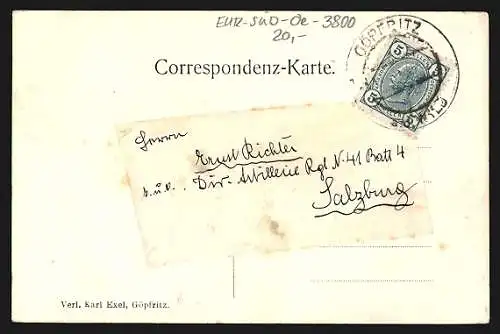 EUR-SWD-Oe-3800
20,-
GÖPFRITZ
5 5
5 5
Correspondenz-Karte.
Herrn
Ernst Richter
k.u.k. Div-Artillerie Rgt N. 41 Batt 4
Salzburg
Verl. Karl Exel, Göpfritz.